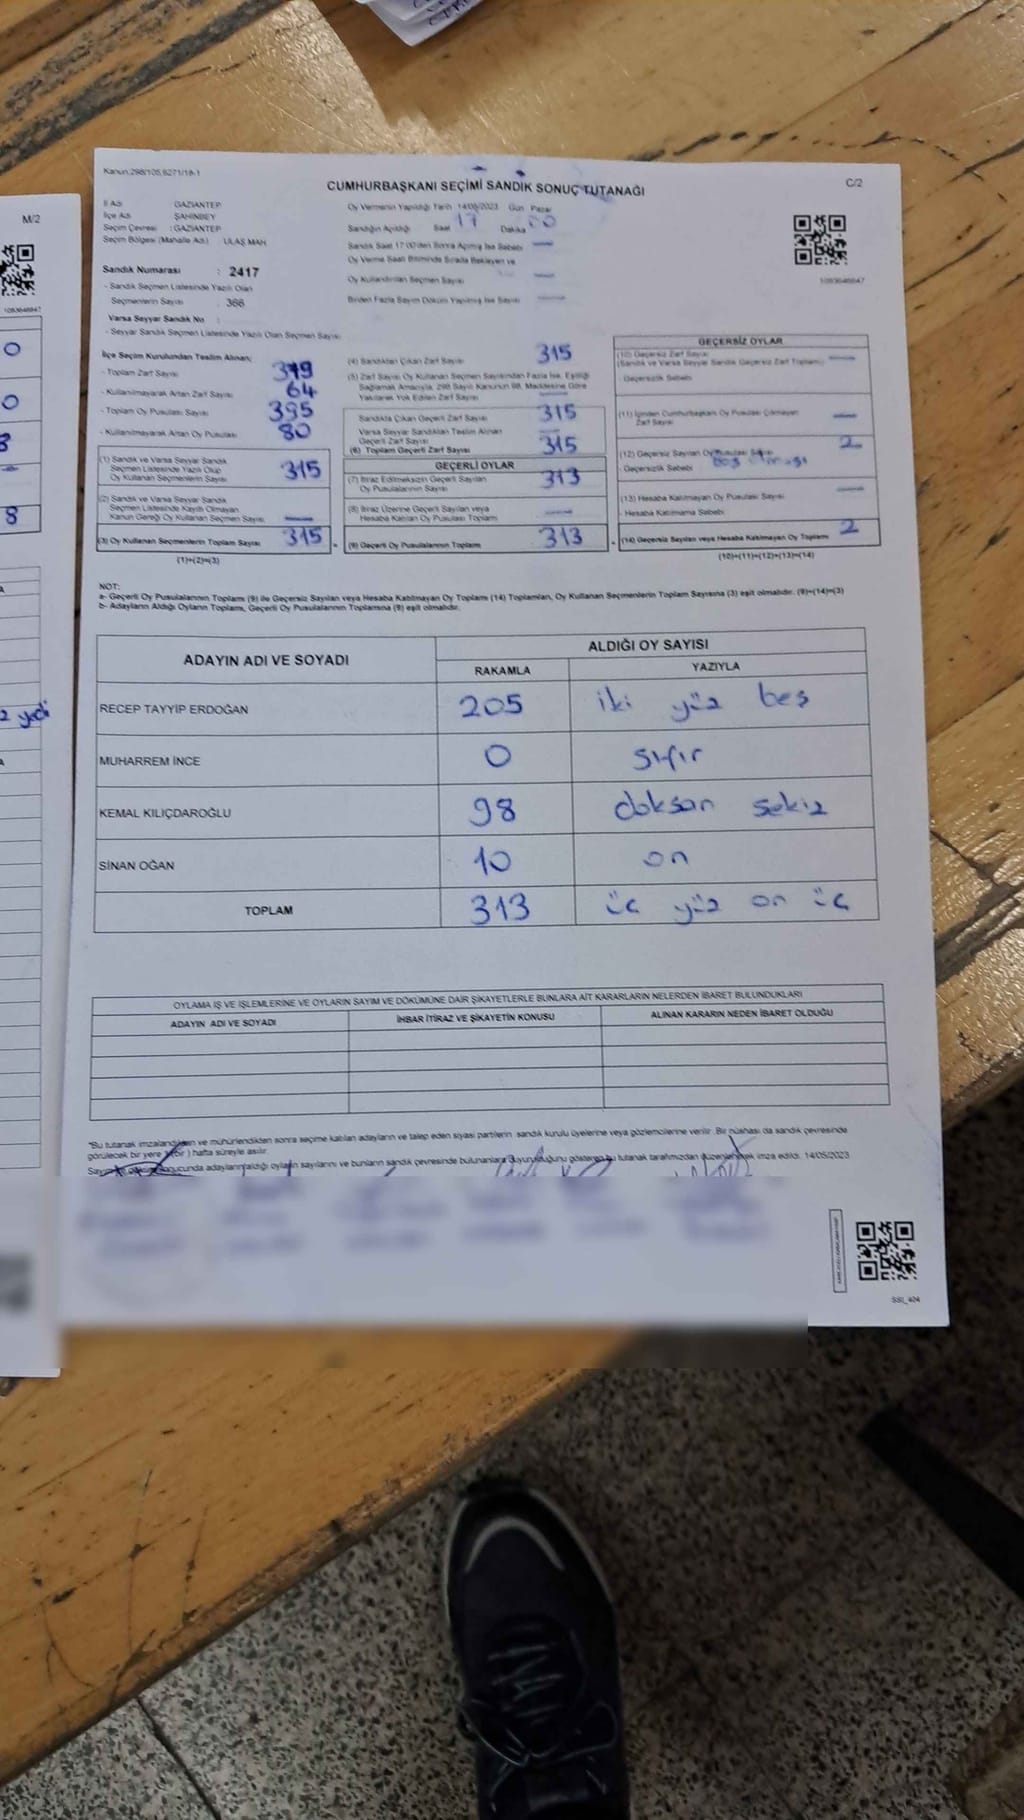 Kanun:298/105,6271/18-1
CUMHURBAŞKANI SEÇİMİ SANDIK SONUÇ TUTANAĞI
C/2
İl Adı GAZİANTEP
İlçe Adı ŞAHİNBEY
Seçim Çevresi : GAZİANTEP
Seçim Bölgesi (Mahalle Adı) : ULAŞ MAH.
Sandık Numarası : 2417
- Sandık Seçmen Listesinde Yazılı Olan
Seçmenlerin Sayısı : 366
Varsa Seyyar Sandık No :
- Seyyar Sandık Seçmen Listesinde Yazılı Olan Seçmen Sayısı
Oy Vermenin Yapıldığı Tarih 14/05/2023 Gün Pazar
Sandığın Açıldığı Saat 17 Dakika 00
Sandık Saat 17:00'den Sonra Açılmış İse Sebebi —
Oy Verme Saati Bitiminde Sırada Bekleyen ve
Oy Kullandırılan Seçmen Sayısı —
Birden Fazla Sayım Döküm Yapılmış İse Sayısı —
1083646647
İlçe Seçim Kurulundan Teslim Alınan;
- Toplam Zarf Sayısı 379
- Kullanılmayarak Artan Zarf Sayısı 64
- Toplam Oy Pusulası Sayısı 395
- Kullanılmayarak Artan Oy Pusulası 80
(1) Sandık ve Varsa Seyyar Sandık
Seçmen Listesinde Yazılı Olup
Oy Kullanan Seçmenlerin Sayısı 315
(2) Sandık ve Varsa Seyyar Sandık
Seçmen Listesinde Kayıtlı Olmayan
Kanun Gereği Oy Kullanan Seçmen Sayısı —
(3) Oy Kullanan Seçmenlerin Toplam Sayısı 315
(1)+(2)=(3)
(4) Sandıktan Çıkan Zarf Sayısı 315
(5) Zarf Sayısı Oy Kullanan Seçmen Sayısından Fazla İse, Eşitliği
Sağlamak Amacıyla, 298 Sayılı Kanunun 98. Maddesine Göre
Yakılarak Yok Edilen Zarf Sayısı —
Sandıkta Çıkan Geçerli Zarf Sayısı 315
Varsa Seyyar Sandıktan Teslim Alınan
Geçerli Zarf Sayısı
(6) Toplam Geçerli Zarf Sayısı 315
GEÇERLİ OYLAR
(7) İtiraz Edilmeksizin Geçerli Sayılan
Oy Pusulalarının Sayısı 313
(8) İtiraz Üzerine Geçerli Sayılan veya
Hesaba Katılan Oy Pusulaları Toplamı —
(9) Geçerli Oy Pusulalarının Toplamı 313
GEÇERSİZ OYLAR
(10) Geçersiz Zarf Sayısı
(Sandık ve Varsa Seyyar Sandık Geçersiz Zarf Toplamı) —
- Geçersizlik Sebebi
(11) İçinden Cumhurbaşkanı Oy Pusulası Çıkmayan
Zarf Sayısı —
(12) Geçersiz Sayılan Oy Pusulası Sayısı 2
- Geçersizlik Sebebi Boş
(13) Hesaba Katılmayan Oy Pusulası Sayısı —
- Hesaba Katılmama Sebebi
(14) Geçersiz Sayılan veya Hesaba Katılmayan Oy Toplamı 2
(10)+(11)+(12)+(13)=(14)
NOT:
a- Geçerli Oy Pusulalarının Toplamı (9) ile Geçersiz Sayılan veya Hesaba Katılmayan Oy Toplamı (14) Toplamları, Oy Kullanan Seçmenlerin Toplam Sayısına (3) eşit olmalıdır. (9)+(14)=(3)
b- Adayların Aldığı Oyların Toplamı, Geçerli Oy Pusulalarının Toplamına (9) eşit olmalıdır.
ADAYIN ADI VE SOYADI
ALDIĞI OY SAYISI
RAKAMLA YAZIYLA
RECEP TAYYİP ERDOĞAN 205 iki yüz beş
MUHARREM İNCE 0 sıfır
KEMAL KILIÇDAROĞLU 98 doksan sekiz
SİNAN OĞAN 10 on
TOPLAM 313 üç yüz on üç
OYLAMA İŞ VE İŞLEMLERİNE VE OYLARIN SAYIM VE DÖKÜMÜNE DAİR ŞİKAYETLERLE BUNLARA AİT KARARLARIN NELERDEN İBARET BULUNDUKLARI
ADAYIN ADI VE SOYADI İHBAR İTİRAZ VE ŞİKAYETİN KONUSU ALINAN KARARIN NEDEN İBARET OLDUĞU
"Bu tutanak imzalandıktan ve mühürlendikten sonra seçime katılan adayların ve talep eden siyasi partilerin sandık kurulu üyelerine veya gözlemcilerine verilir. Bir nüshası da sandık çevresinde
görülecek bir yere 1(bir) hafta süreyle asılır.
Sayım ve döküm sonucunda adayların aldığı oyların sayılarını ve bunların sandık çevresinde bulunanlara duyurulduğunu gösteren bu tutanak tarafımızdan düzenlenerek imza edildi. 14/05/2023
SSI_404
M/2
0
0
8
yedi